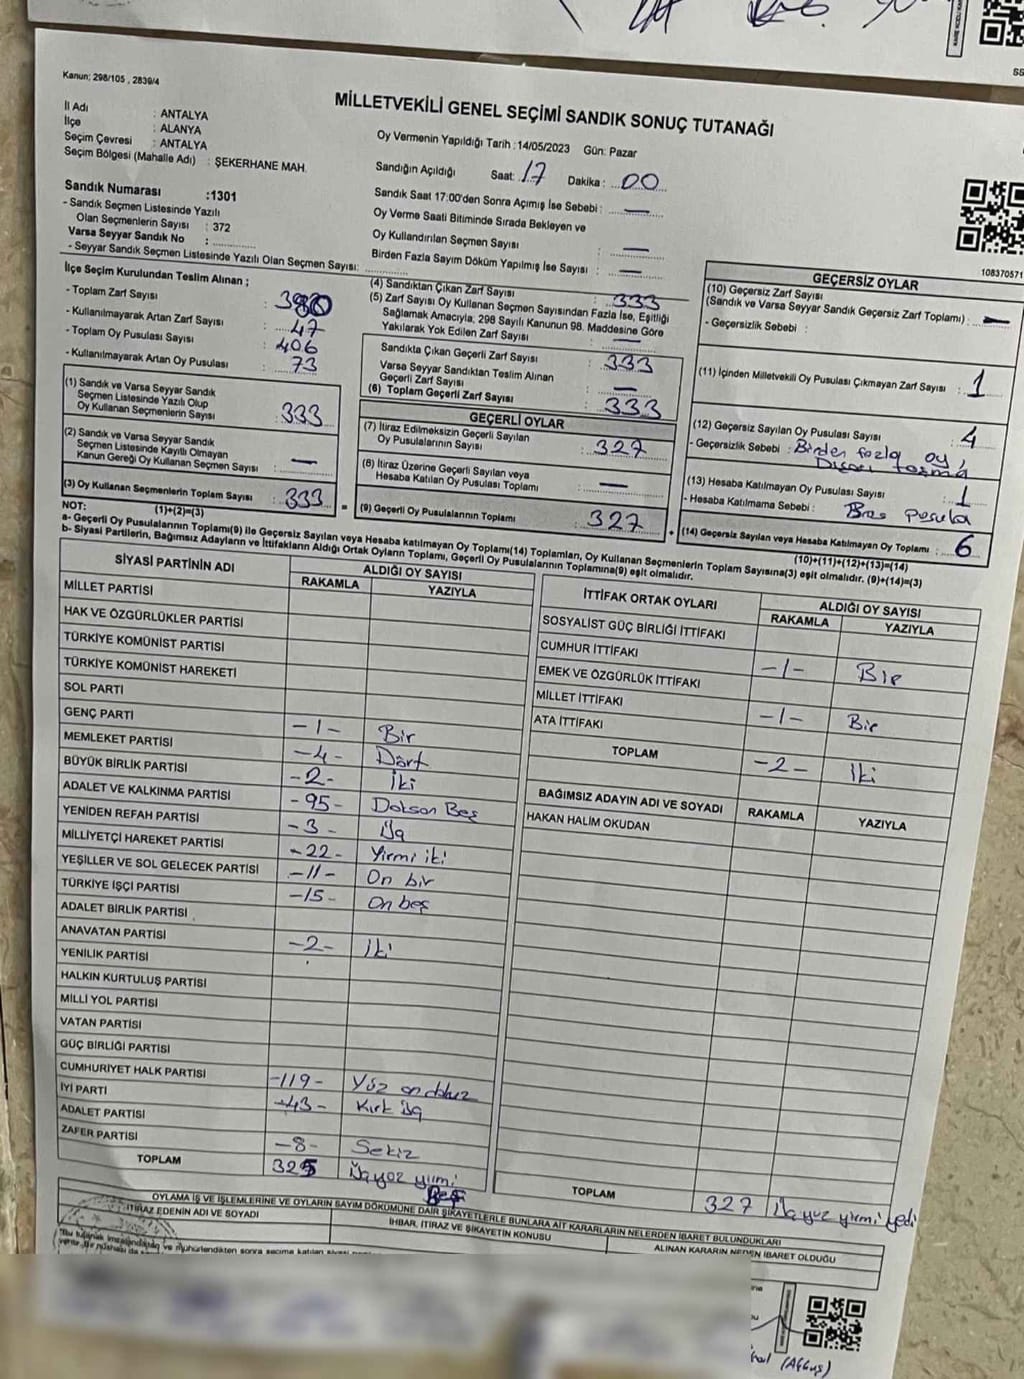 Kanun; 298/105 , 2839/4
MİLLETVEKİLİ GENEL SEÇİMİ SANDIK SONUÇ TUTANAĞI
İl Adı : ANTALYA
İlçe : ALANYA
Seçim Çevresi : ANTALYA
Seçim Bölgesi (Mahalle Adı) : ŞEKERHANE MAH.
Sandık Numarası :1301
- Sandık Seçmen Listesinde Yazılı
Olan Seçmenlerin Sayısı : 372
Varsa Seyyar Sandık No :
- Seyyar Sandık Seçmen Listesinde Yazılı Olan Seçmen Sayısı:
Oy Vermenin Yapıldığı Tarih : 14/05/2023 Gün: Pazar
Sandığın Açıldığı Saat: 17 Dakika : 00
Sandık Saat 17:00'den Sonra Açımış İse Sebebi : —
Oy Verme Saati Bitiminde Sırada Bekleyen ve
Oy Kullandırılan Seçmen Sayısı : —
Birden Fazla Sayım Döküm Yapılmış İse Sayısı : —
108370571
İlçe Seçim Kurulundan Teslim Alınan ;
- Toplam Zarf Sayısı : 380
- Kullanılmayarak Artan Zarf Sayısı : 47
- Toplam Oy Pusulası Sayısı : 406
- Kullanılmayarak Artan Oy Pusulası : 73
(1) Sandık ve Varsa Seyyar Sandık
Seçmen Listesinde Yazılı Olup
Oy Kullanan Seçmenlerin Sayısı : 333
(2) Sandık ve Varsa Seyyar Sandık
Seçmen Listesinde Kayıtlı Olmayan
Kanun Gereği Oy Kullanan Seçmen Sayısı : —
(3) Oy Kullanan Seçmenlerin Toplam Sayısı : 333
(1)+(2)=(3)
(4) Sandıktan Çıkan Zarf Sayısı : 333
(5) Zarf Sayısı Oy Kullanan Seçmen Sayısından Fazla İse, Eşitliği
Sağlamak Amacıyla; 298 Sayılı Kanunun 98. Maddesine Göre
Yakılarak Yok Edilen Zarf Sayısı : —
Sandıkta Çıkan Geçerli Zarf Sayısı : 333
Varsa Seyyar Sandıktan Teslim Alınan
Geçerli Zarf Sayısı : —
(6) Toplam Geçerli Zarf Sayısı : 333
GEÇERLİ OYLAR
(7) İtiraz Edilmeksizin Geçerli Sayılan
Oy Pusulalarının Sayısı : 327
(8) İtiraz Üzerine Geçerli Sayılan veya
Hesaba Katılan Oy Pusulası Toplamı : —
(9) Geçerli Oy Pusulalarının Toplamı : 327
GEÇERSİZ OYLAR
(10) Geçersiz Zarf Sayısı
(Sandık ve Varsa Seyyar Sandık Geçersiz Zarf Toplamı) : —
- Geçersizlik Sebebi :
(11) İçinden Milletvekili Oy Pusulası Çıkmayan Zarf Sayısı : 1
(12) Geçersiz Sayılan Oy Pusulası Sayısı : 4
- Geçersizlik Sebebi : Birden fazla oy,
Dışarı taşma
(13) Hesaba Katılmayan Oy Pusulası Sayısı : 1
- Hesaba Katılmama Sebebi : Boş pusula
(14) Geçersiz Sayılan veya Hesaba Katılmayan Oy Pusulası Toplamı : 6
(10)+(11)+(12)+(13)=(14)
NOT:
a- Geçerli Oy Pusulalarının Toplamı(9) ile Geçersiz Sayılan veya Hesaba katılmayan Oy Toplamı(14) Toplamları, Oy Kullanan Seçmenlerin Toplam Sayısına(3) eşit olmalıdır. (9)+(14)=(3)
b- Siyasi Partilerin, Bağımsız Adayların ve İttifakların Aldığı Ortak Oyların Toplamı, Geçerli Oy Pusulalarının Toplamına(9) eşit olmalıdır.
SİYASİ PARTİNİN ADI ALDIĞI OY SAYISI
RAKAMLA YAZIYLA
MİLLET PARTİSİ
HAK VE ÖZGÜRLÜKLER PARTİSİ
TÜRKİYE KOMÜNİST PARTİSİ
TÜRKİYE KOMÜNİST HAREKETİ
SOL PARTİ
GENÇ PARTİ -1- Bir
MEMLEKET PARTİSİ -4- Dört
BÜYÜK BİRLİK PARTİSİ -2- İki
ADALET VE KALKINMA PARTİSİ -95- Doksan Beş
YENİDEN REFAH PARTİSİ -3- Üç
MİLLİYETÇİ HAREKET PARTİSİ -22- Yirmi iki
YEŞİLLER VE SOL GELECEK PARTİSİ -11- On bir
TÜRKİYE İŞÇİ PARTİSİ -15- On beş
ADALET BİRLİK PARTİSİ
ANAVATAN PARTİSİ -2- İki
YENİLİK PARTİSİ
HALKIN KURTULUŞ PARTİSİ
MİLLİ YOL PARTİSİ
VATAN PARTİSİ
GÜÇ BİRLİĞİ PARTİSİ
CUMHURİYET HALK PARTİSİ -119- Yüz on dokuz
İYİ PARTİ -43- Kırk üç
ADALET PARTİSİ
ZAFER PARTİSİ -8- Sekiz
TOPLAM 325 Üçyüz yirmi
Beş
İTTİFAK ORTAK OYLARI ALDIĞI OY SAYISI
RAKAMLA YAZIYLA
SOSYALİST GÜÇ BİRLİĞİ İTTİFAKI
CUMHUR İTTİFAKI -1- Bir
EMEK VE ÖZGÜRLÜK İTTİFAKI
MİLLET İTTİFAKI -1- Bir
ATA İTTİFAKI
TOPLAM -2- İki
BAĞIMSIZ ADAYIN ADI VE SOYADI RAKAMLA YAZIYLA
HAKAN HALİM OKUDAN
TOPLAM 327 Üçyüz yirmi yedi
OYLAMA İŞ VE İŞLEMLERİNE VE OYLARIN SAYIM DÖKÜMÜNE DAİR ŞİKAYETLERLE BUNLARA AİT KARARLARIN NELERDEN İBARET BULUNDUKLARI
İTİRAZ EDENİN ADI VE SOYADI
İHBAR, İTİRAZ VE ŞİKAYETİN KONUSU
ALINAN KARARIN NEDEN İBARET OLDUĞU